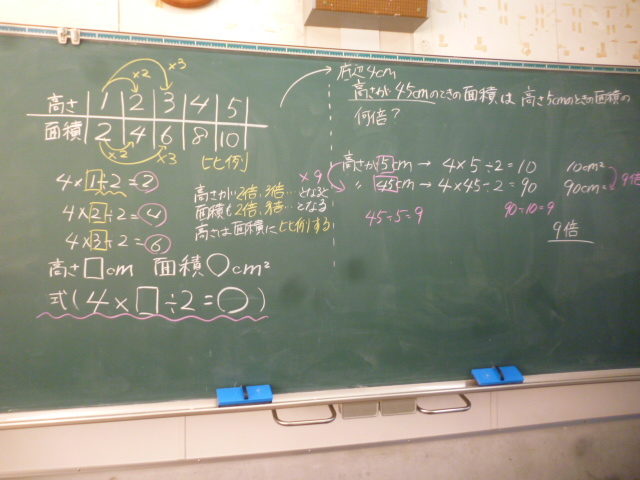 ×2 ×3
高さ 1 2 3 4 5
面積 2 4 6 8 10
×2 ×3 比例
4×1÷2=2
4×2÷2=4
4×3÷2=6
高さが2倍、3倍…となると
面積も2倍、3倍…となる
高さは面積に比例する
高さ□cm 面積○cm²
式(4×□÷2=○)
底辺4cm
高さが45cmのときの面積は高さ5cmのときの面積の
何倍?
高さが5cm→4×5÷2=10 10cm²
×9 〃 45cm→4×45÷2=90 90cm² 9倍
45÷5=9 90÷10=9
9倍